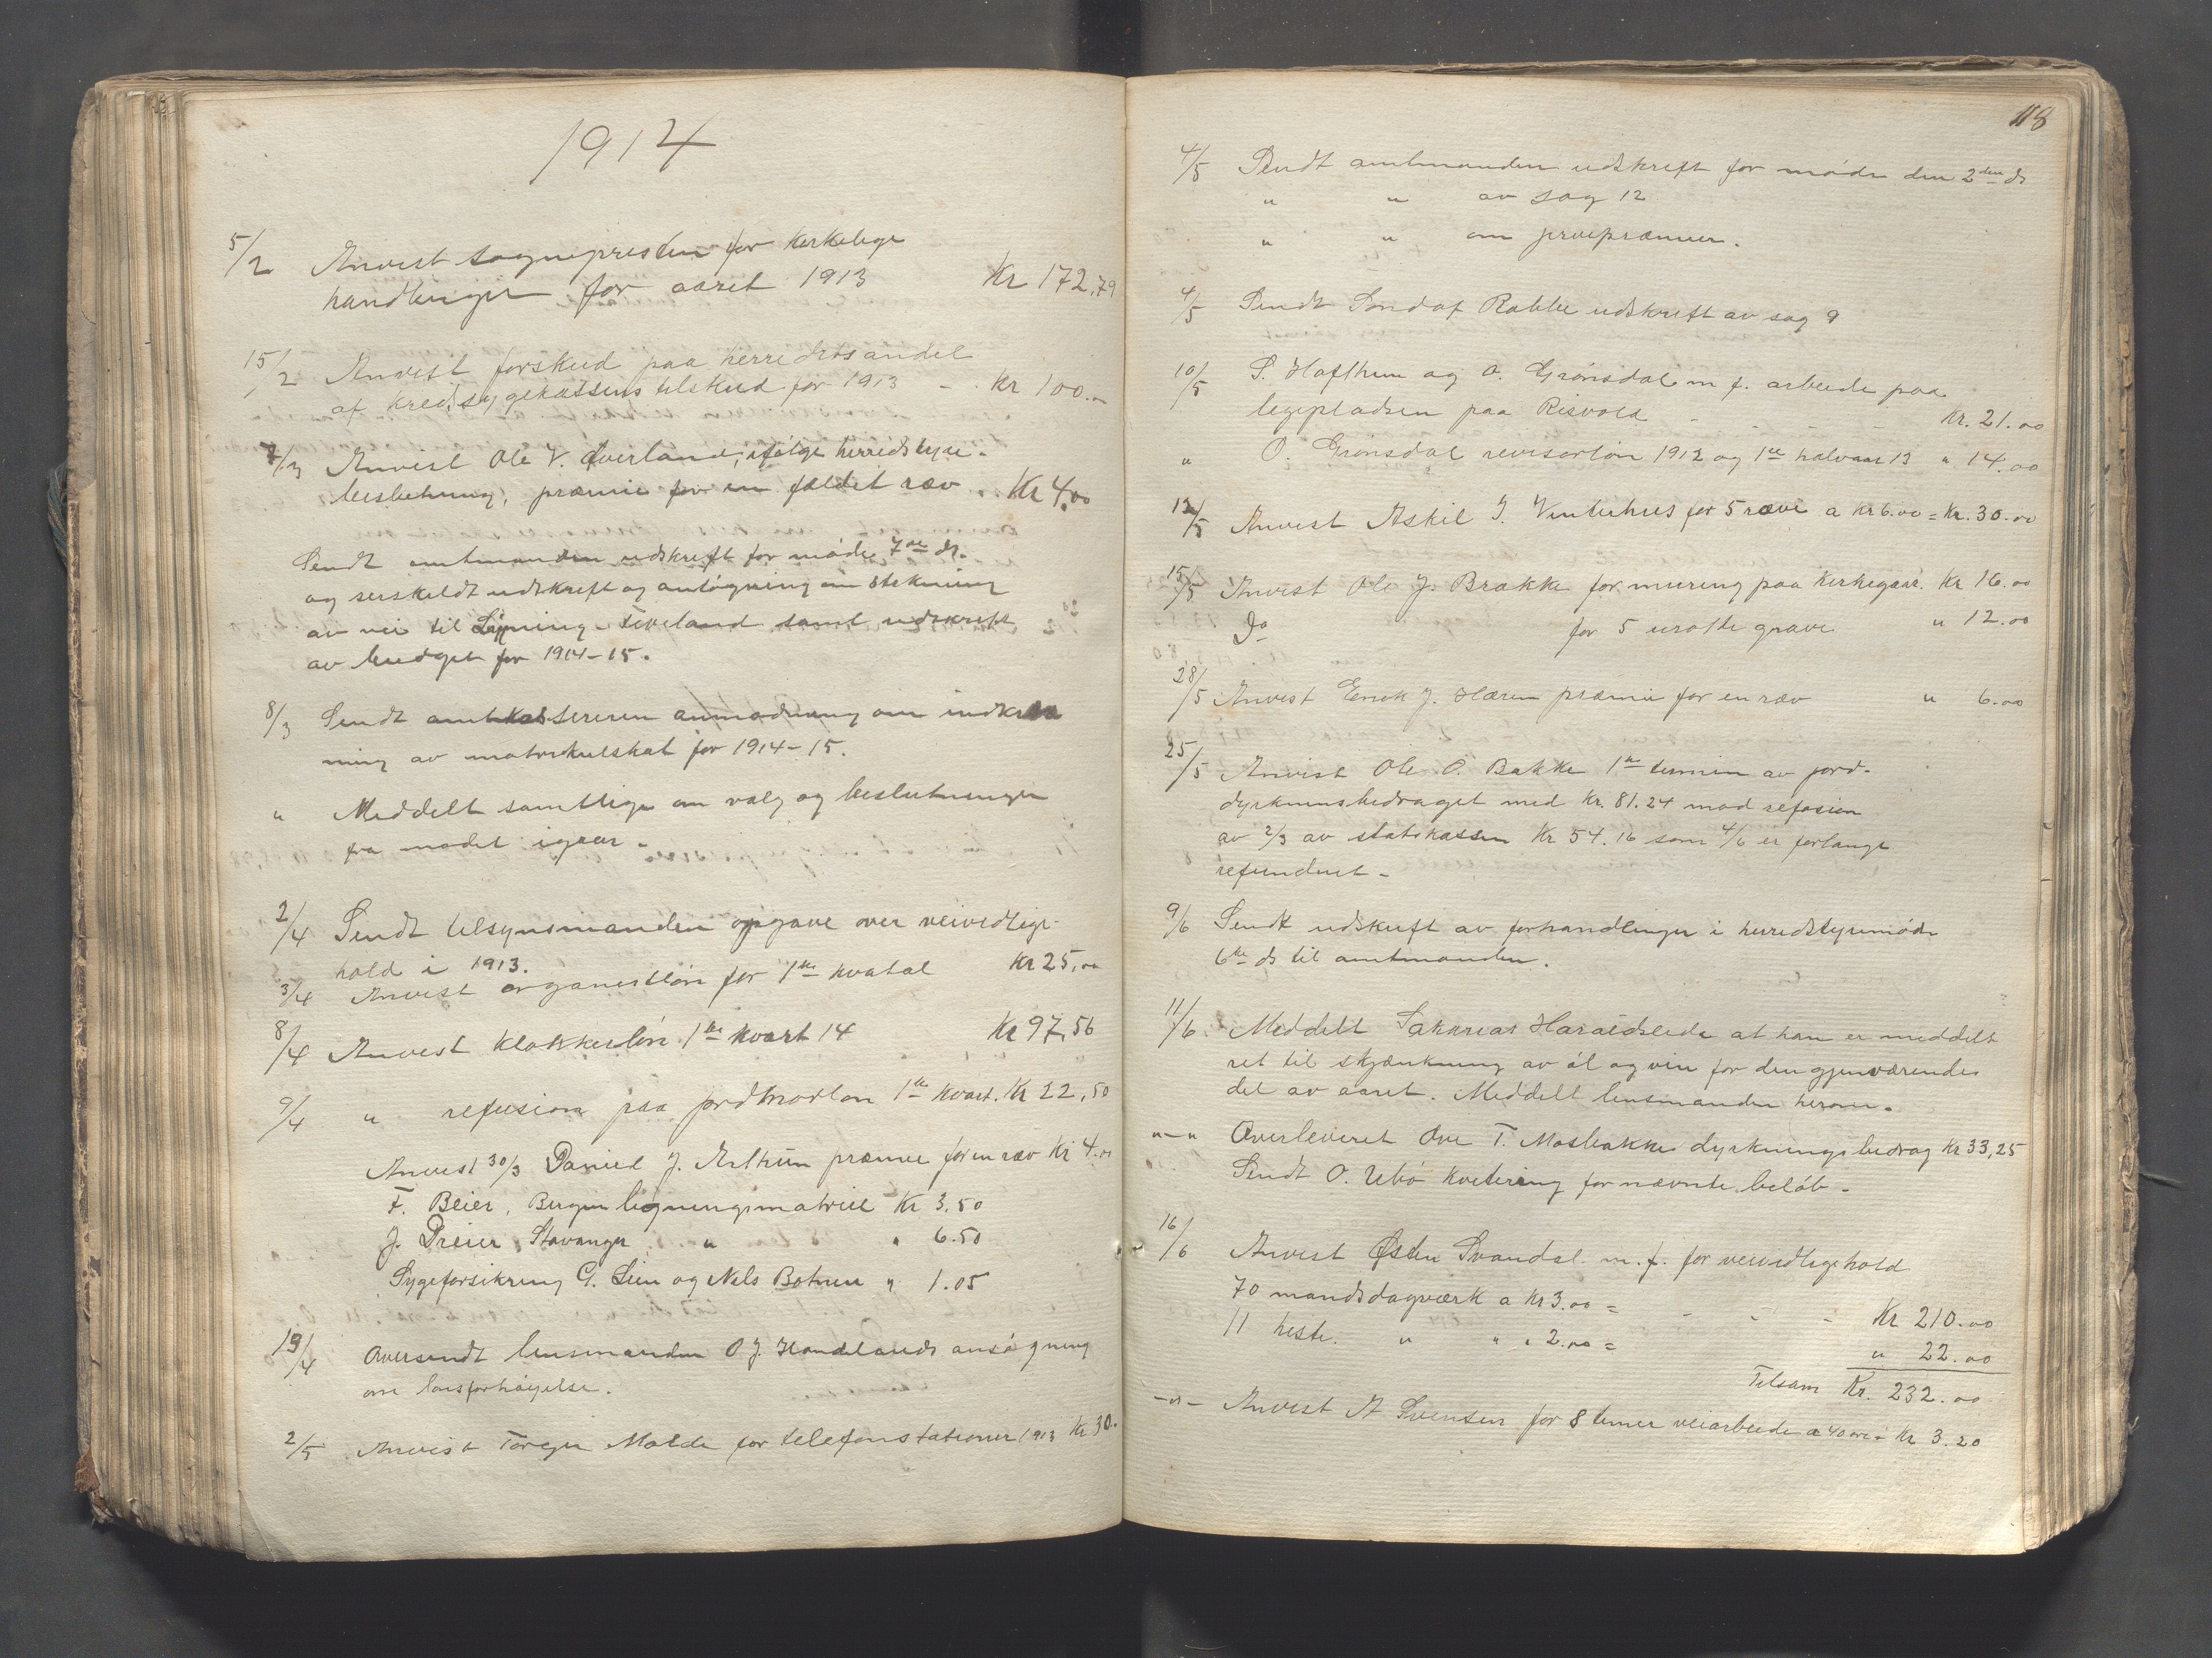 1914
5/2 Anvist sognepresten for kerkelige
handlinger for aaret 1913 Kr 172,79
15/2 Anvist forskud paa herredets andel
af kredssygekassens tilskud for 1913 - Kr 100.-
7/3 Anvist Ole V. Øverland, ifølge herredstyre-
beslutning, præmie for en fældet ræv. Kr 4,00
Sendt amtmanden udskrift for møde 7de ds.
og serskeldt udskrift og ansøgning om
av vei til - Tveland samt udskrift
av budget for 1914-15.
8/3 Sendt amtkassereren anmodning om indkræv
ning av matrikulskat for 1914-15.
" Meddelt samtlige om valg og beslutninger
fra mødet igaar.
2/4 Sendt tilsynsmanden opgave over veivedlige-
hold i 1913.
3/4 Anvist organistløn for 1ste kvatal Kr 25,00
8/4 Anvist Klokkerløn 1ste kvart 14 Kr 97,56
9/4 " refusion paa jordmorløn 1ste kvart. Kr 22,50
Anvist 30/3 Daniel J. Arthun præmie for en ræv Kr 4.00
F. Beier, Bergen ligningsmatriel Kr 3,50
J. Dreier, Stavanger " " 6.50
Sygeforsikring G. Lien og Nils Botnen " 1.05
19/4 Oversendt lensmanden O J. Handelands ansøgning
om lønsforhøyelse.
2/5 Anvist Torger Molde for telefonstationer 1913 Kr 30.-
118
4/5 Sendt amtmanden udskrift for møde den 2den ds
" " av sag 12
" " om jervepræmier.
4/5 Sendt Rabbe udskrift av sag 9
10/5 S. Hafthun og O. Grønsdal m f. arbeide paa
legepladsen paa Risvold - - - - Kr. 21.00
" O. Grønsdal revisorløn 1912 og 1ste halvaar 13 " 14.00
12/5 Anvist Askil J. Vinterhus for 5 ræve a kr 6.00 = Kr. 30.00
15/5 Anvist Ole J. Brakke for muring paa Kerkegaar. Kr 16.00
Do for 5 grave " 12.00
28/5 Anvist Erik J. Hæren præmie for en ræv " 6.00
25/5 Anvist Ole O. Bakke 1ste termin av jord-
dyrkninsbedraget med Kr. 81.24 mod refosion
av 2/3 av statskassen Kr 54.16 som 4/6 er forlangt
refunderet -
9/6 Sendt udskrift av forhandlinger i herredstyremøde
6te ds til amtmanden.
11/6 Meddelt Sakarias Haraldseide at han er meddelt
ret til skjænkning av øl og vin for den gjenværende
del av aaret. Meddelt lensmanden herom.
"-" Overleveret Ove T. Mosbakke dyrkningsbedrag Kr 33,25
Sendt O. Ubø Kvitering for nævnte beløb -
16/6 Anvist Østen Svandal m. f. for veivedligehold
70 mandsdagværk a Kr 3.00 = - - - Kr 210.00
11 heste. " " " 2.00 = " 22.00
Tilsam Kr. 232.00
-"- Anvist A Svensen for 8 timer veiarbeide a 40 øre = Kr 3.20